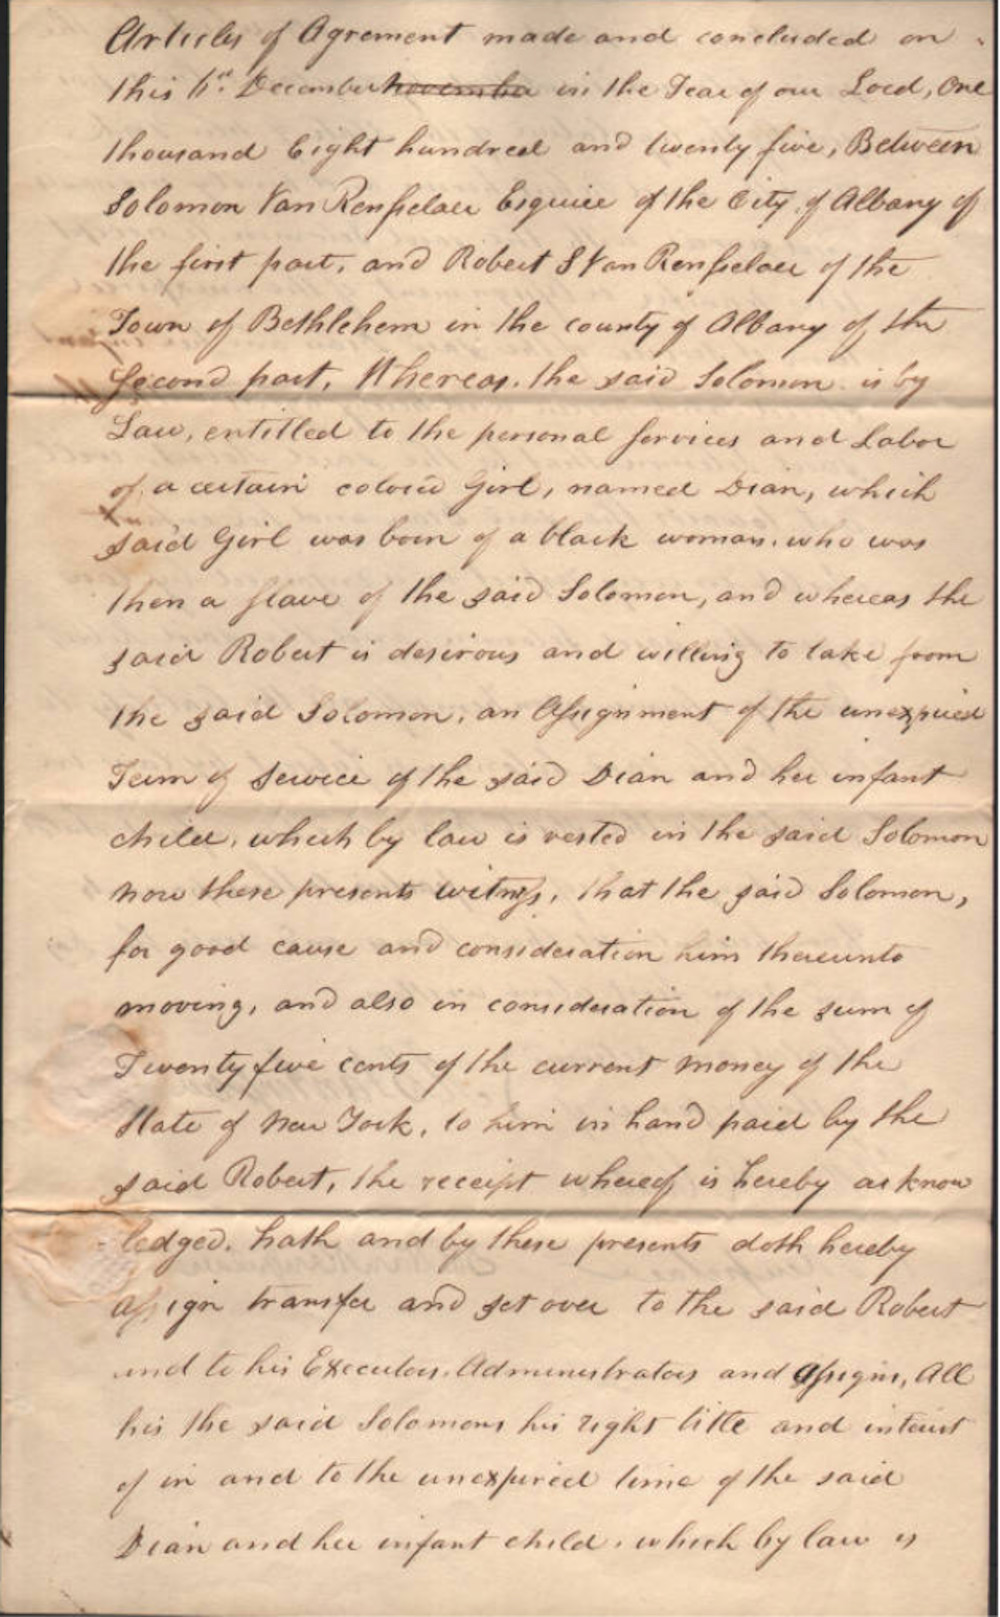 Articles of Agrement made and concluded on
this 1st December november in the Year of our Lord, One
thousand Eight hundred and twenty five, Between
Solomon Van Rensselaer Esquire of the City of Albany of
the first part, and Robert S Van Rensselaer of the
Town of Bethlehem in the county of Albany of the
Second part, Whereas. the said Solomon is by
Law, entitled to the personal services and Labor
of a certain colored Girl, named Dian, which
said Girl was born of a black woman. who was
then a slave of the said Solomon, and whereas the
said Robert is desirous and willing to take from
the said Solomon, an Assignment of the unexpired
Term of Service of the said Dian and her infant
child, which by law is vested in the said Solomon
Now these presents witness, that the said Solomon,
for good cause and consideration him thereunto
moving, and also in consideration of the sum of
Twenty five cents of the current money of the
State of New York, to him in hand paid by the
said Robert, the receipt whereof is hereby acknow
ledged. hath and by these presents doth hereby
Assign transfer and set over to the said Robert
and to his Executors. Administrators and Assigns, All
his the said Solomons his right title and interest
of in and to the unexpired time of the said
Dian and her infant child. which by law is